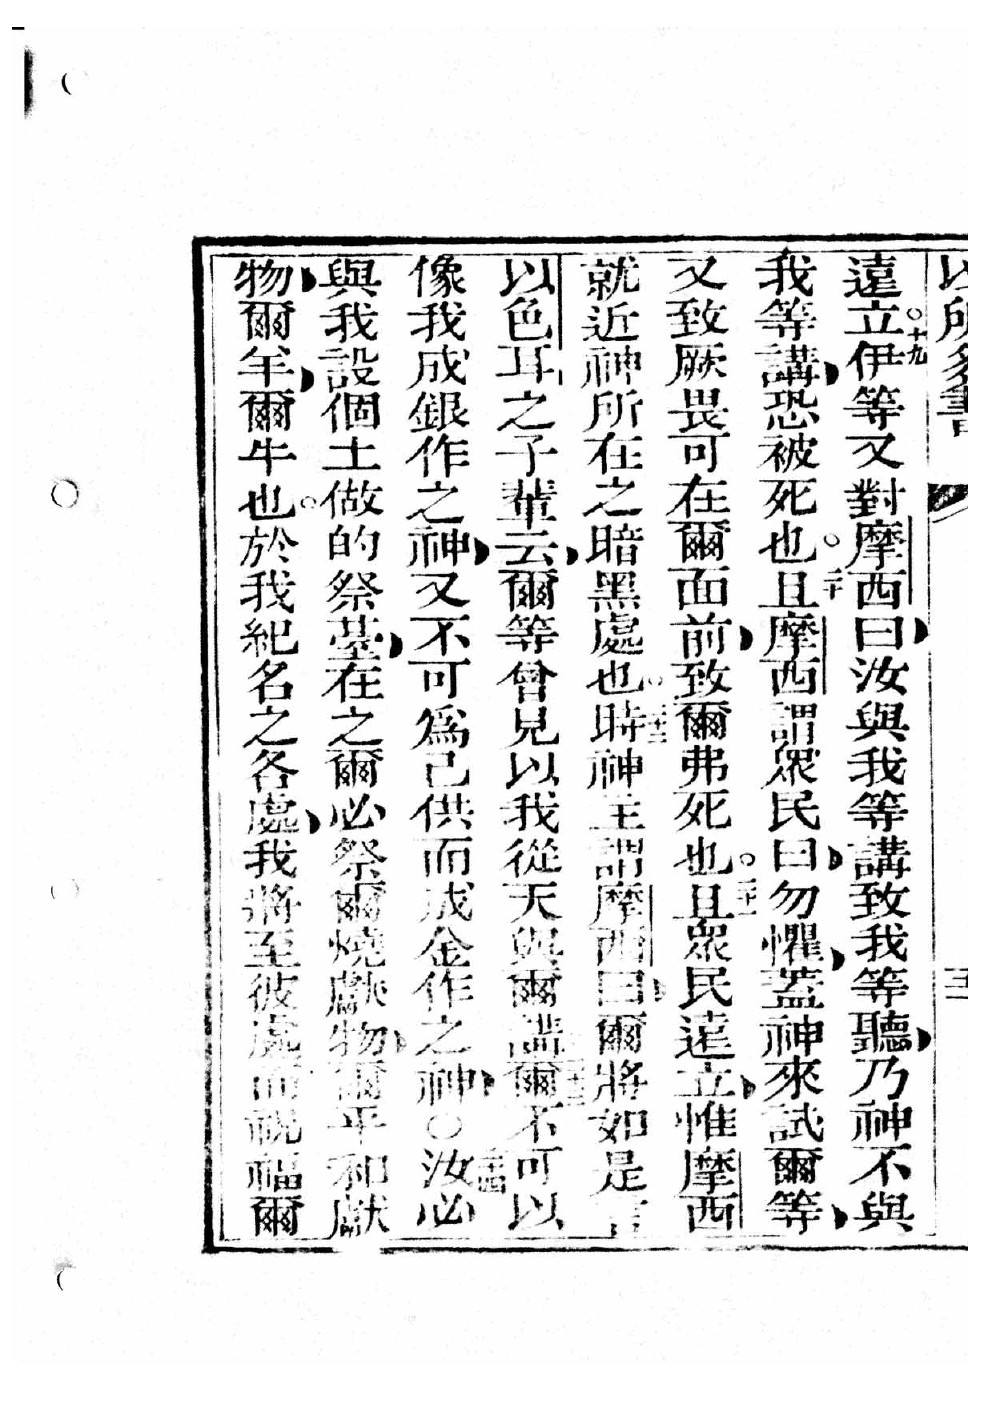 遠立○十九伊等又對摩西曰汝與我等講致我等聽乃神不與
我等講恐被死也○二十且摩西謂眾民曰勿懼蓋神來試爾等
又致厥畏可在爾面前致爾弗死也○二十一且眾民遠立惟摩西
就近神所在之暗黑處也○二十二時神主謂摩西曰爾將如是言
以色耳之子輩云爾等曾見以我從天與爾講二十三爾不可以
像我成銀作之神又不可為己供而成金作之神○二十四汝必
與我設個土做的祭臺在之爾必祭爾燒獻物爾平和獻
物爾羊爾牛也○於我紀名之各處我將至彼處而祝福爾